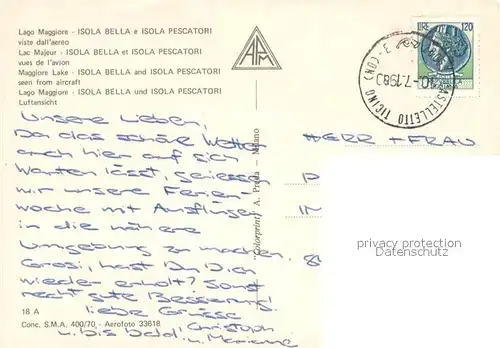 Lago Maggiore - ISOLA BELLA e ISOLA PESCATORI
viste dall'aereo
Lac Majeur - ISOLA BELLA et ISOLA PESCATORI
vues de l'avion
Maggiore Lake - ISOLA BELLA and ISOLA PESCATORI
seen from aircraft
Lago Maggiore - ISOLA BELLA und ISOLA PESCATORI
Luftansicht
APM
LIRE 120
CASTELLETTO TICINO
Unsere Lieben,
Da das schöne Wetter
auch hier auf sich
warten lässt, geniessen
wir unsere Ferien-
woche mit Ausflügen
in die nähere
Umgebung zu machen.
Grosi, hast Du Dich
wieder erholt? Sonst
recht gute Besserung!
liebe Grüsse
u. bis bald! Christoph
u. Marianne
"Colorprint" A. Preda - Milano
HERR + FRAU
privacy protection
Datenschutz
18 A
Conc. S.M.A. 400/70 - Aerofoto 33618